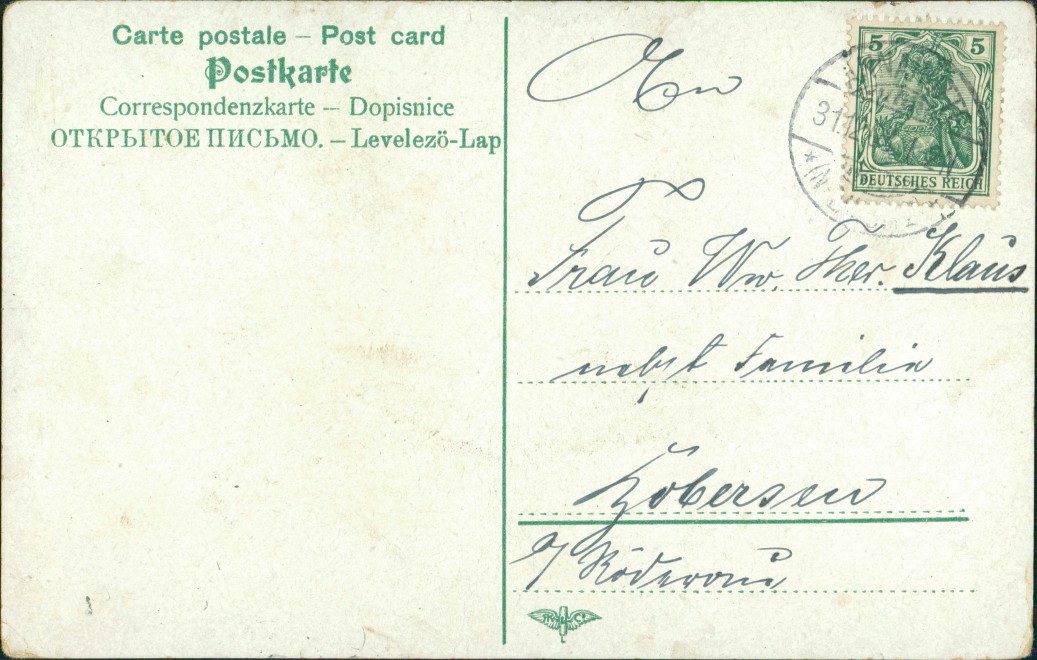 Carte postale – Post card
Postkarte
Correspondenzkarte – Dopisnice
ОТКРЫТОЕ ПИСЬМО. – Levelezö-Lap
5 5
DEUTSCHES REICH
31.12
An
Frau Ww. Ther. Klaus
nebst Familie
Kobersen
a/ Röderau